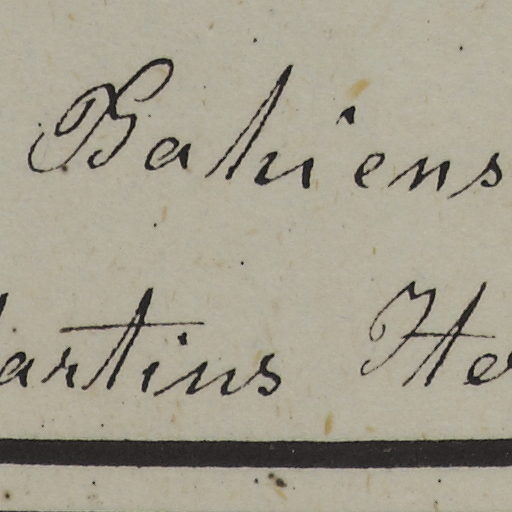 Bahiens
artins He